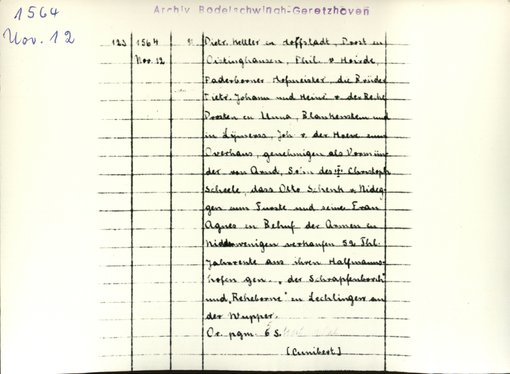 Archiv Bodelschwingh-Geretzhoven
1564
Nov. 12
123 1564 Nov. 12
Dietr. Kettler in Hoffstadt, Drost in
Oistinghausen, Phil. v Hoirde,
Paderborner Hofmeister, die Brüder
Dietr. Johann und Heinr v. der Reke
Drosten in Unna, Blankenstein und
in Lymers, Joh v. der Hoeve zum
Overhaus, genehmigen als Vormün
der von Arnd, Sohn des † Christoph
Scheele, dass Otto Schenk v Nideg-
gen zum Turste und seine Frau
Agnes in Behuf der Armen in
Niddewenigen verkaufen 52 Thl.
Jahrrente aus ihren Halfmanns-
höfen gen. "der Schrapfenborch"
und "Reheborne" in Lechlingen an
der Wupper.
Or. pgm. 6 S.
[Cunibert]